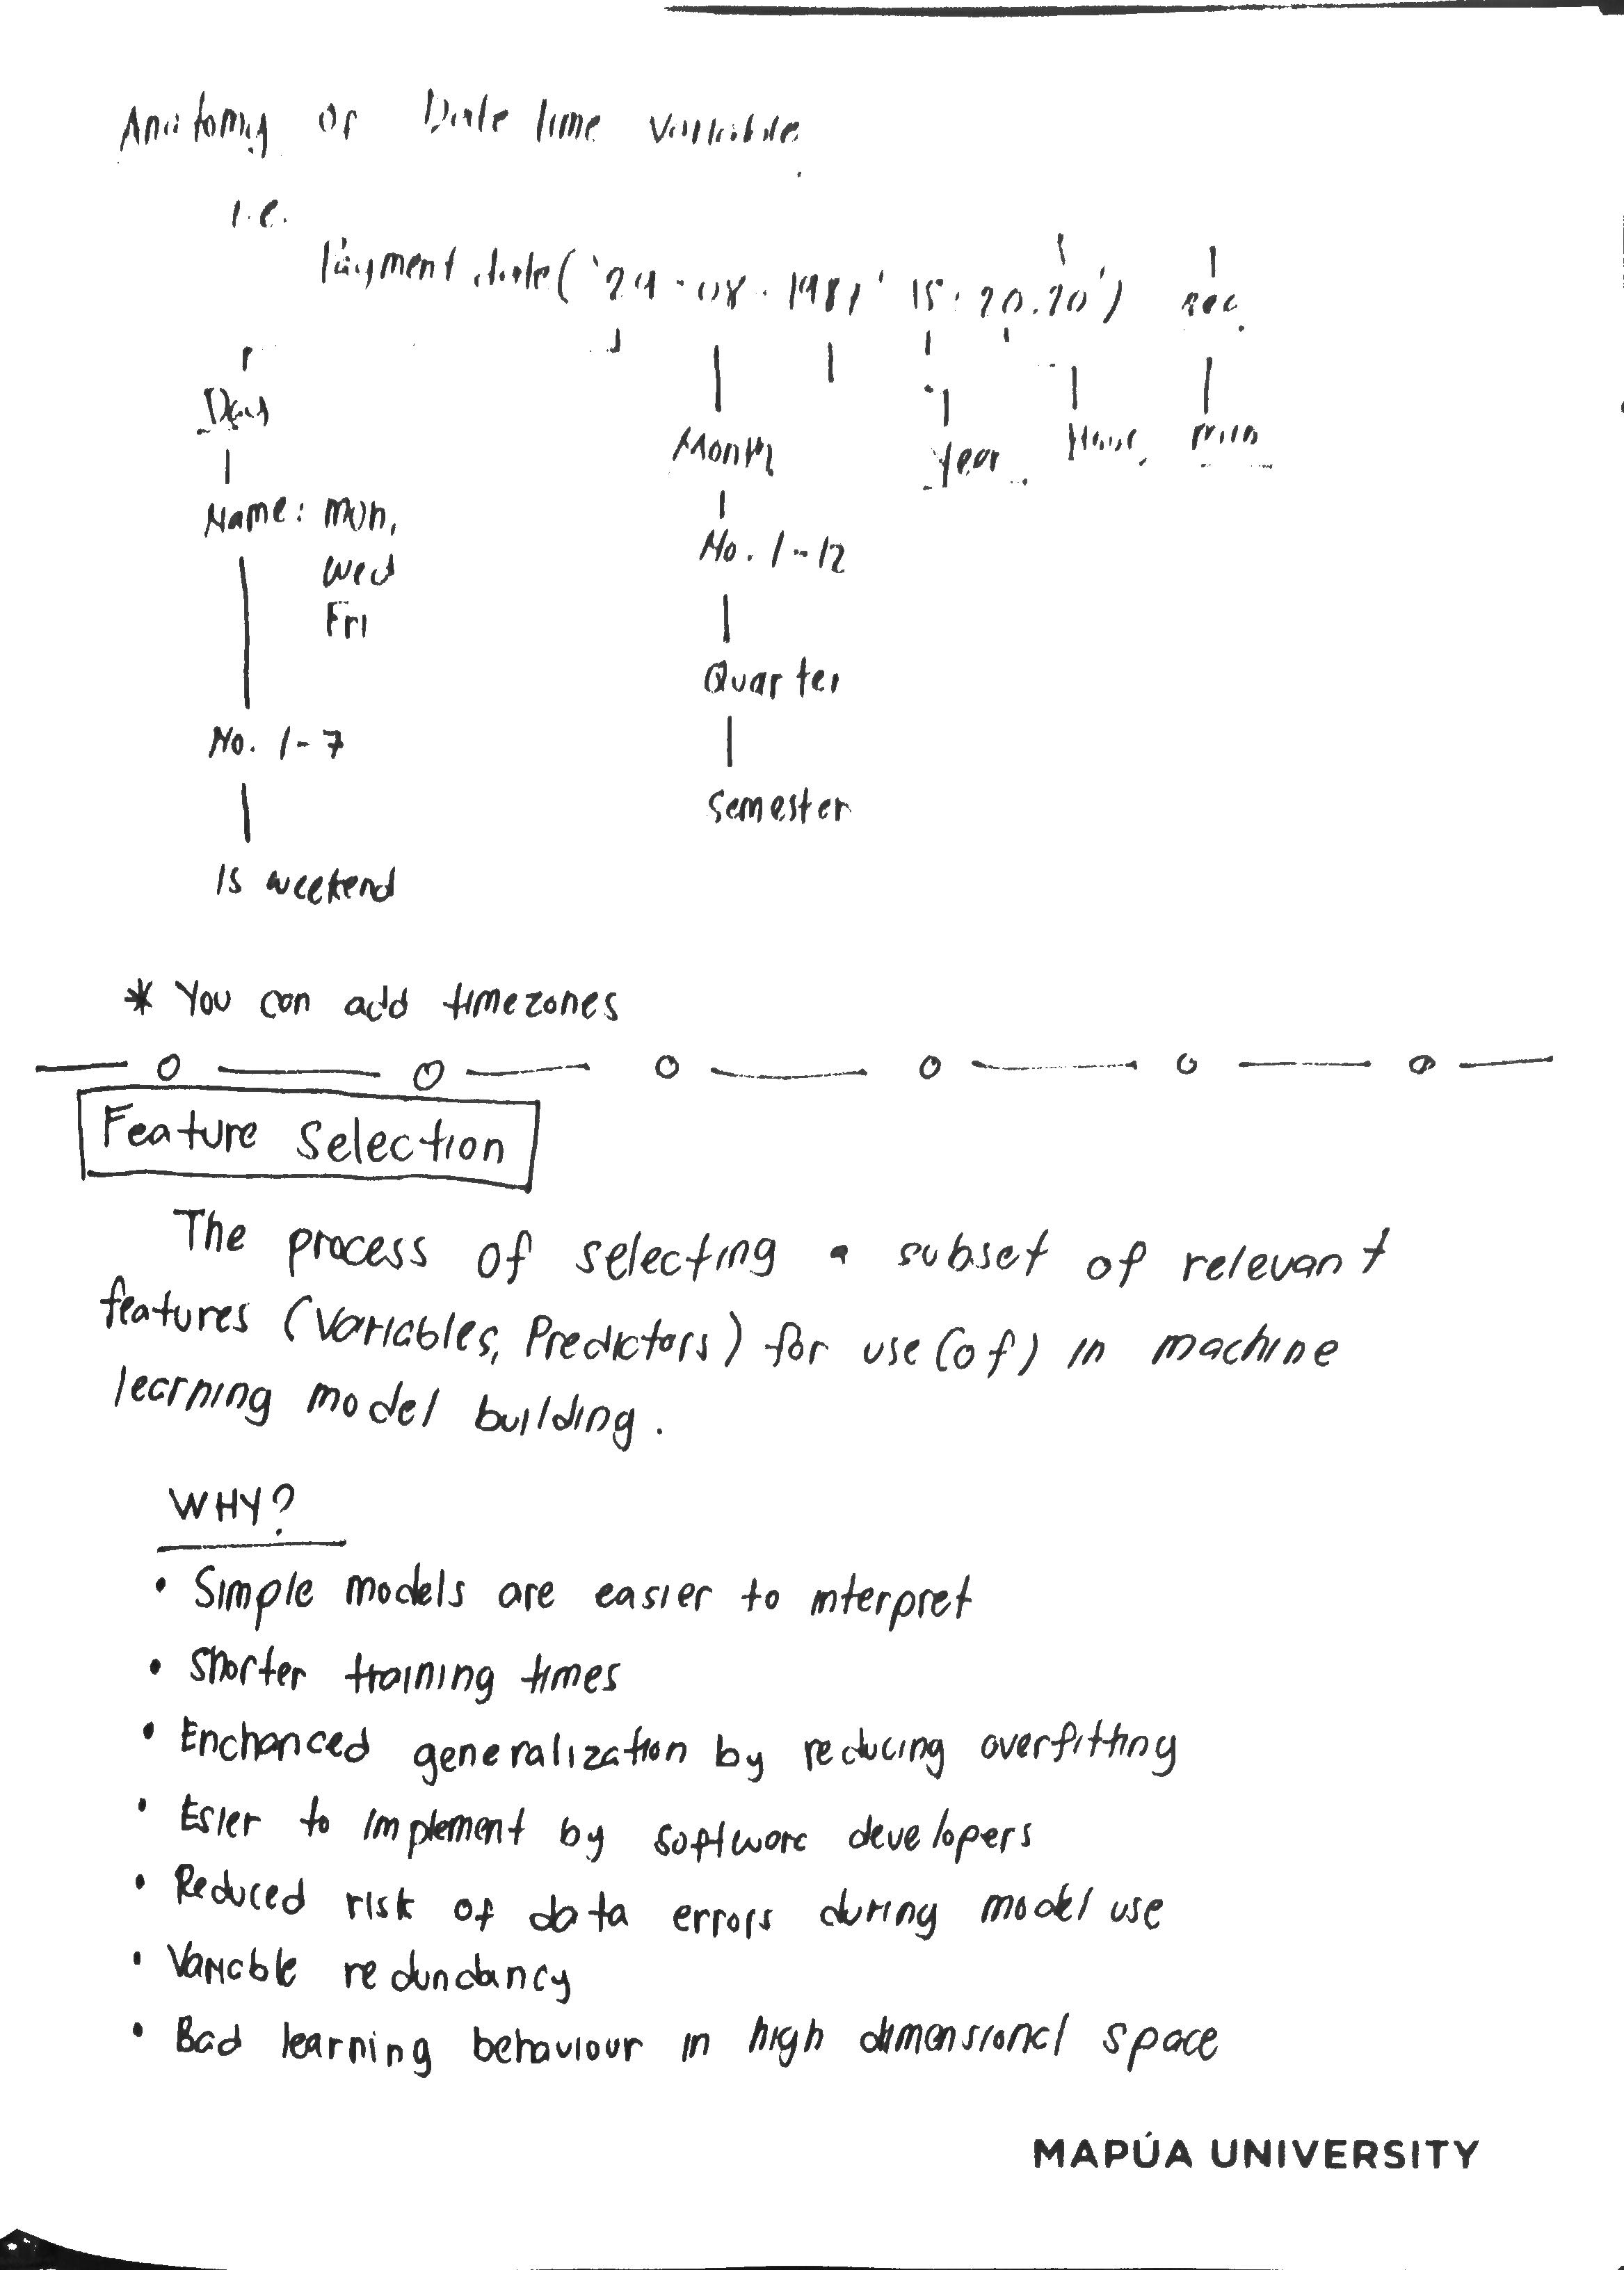 Anatomy of Date time variable
i.e.
Payment date('29-08-1981' 15:20.20') sec.
Day
Month
Year
Hour
min
Name: Mon,
Wed
Fri
No. 1-12
Quarter
No. 1-7
Semester
Is weekend
* You can add timezones
Feature Selection
The process of selecting a subset of relevant
features (Variables, Predictors) for use (of) in machine
learning model building.
WHY?
• Simple models are easier to interpret
• Shorter training times
• Enchanced generalization by reducing overfitting
• Esier to implement by software developers
• Reduced risk of data errors during model use
• Variable redundancy
• Bad learning behaviour in high dimensional space
MAPÚA UNIVERSITY